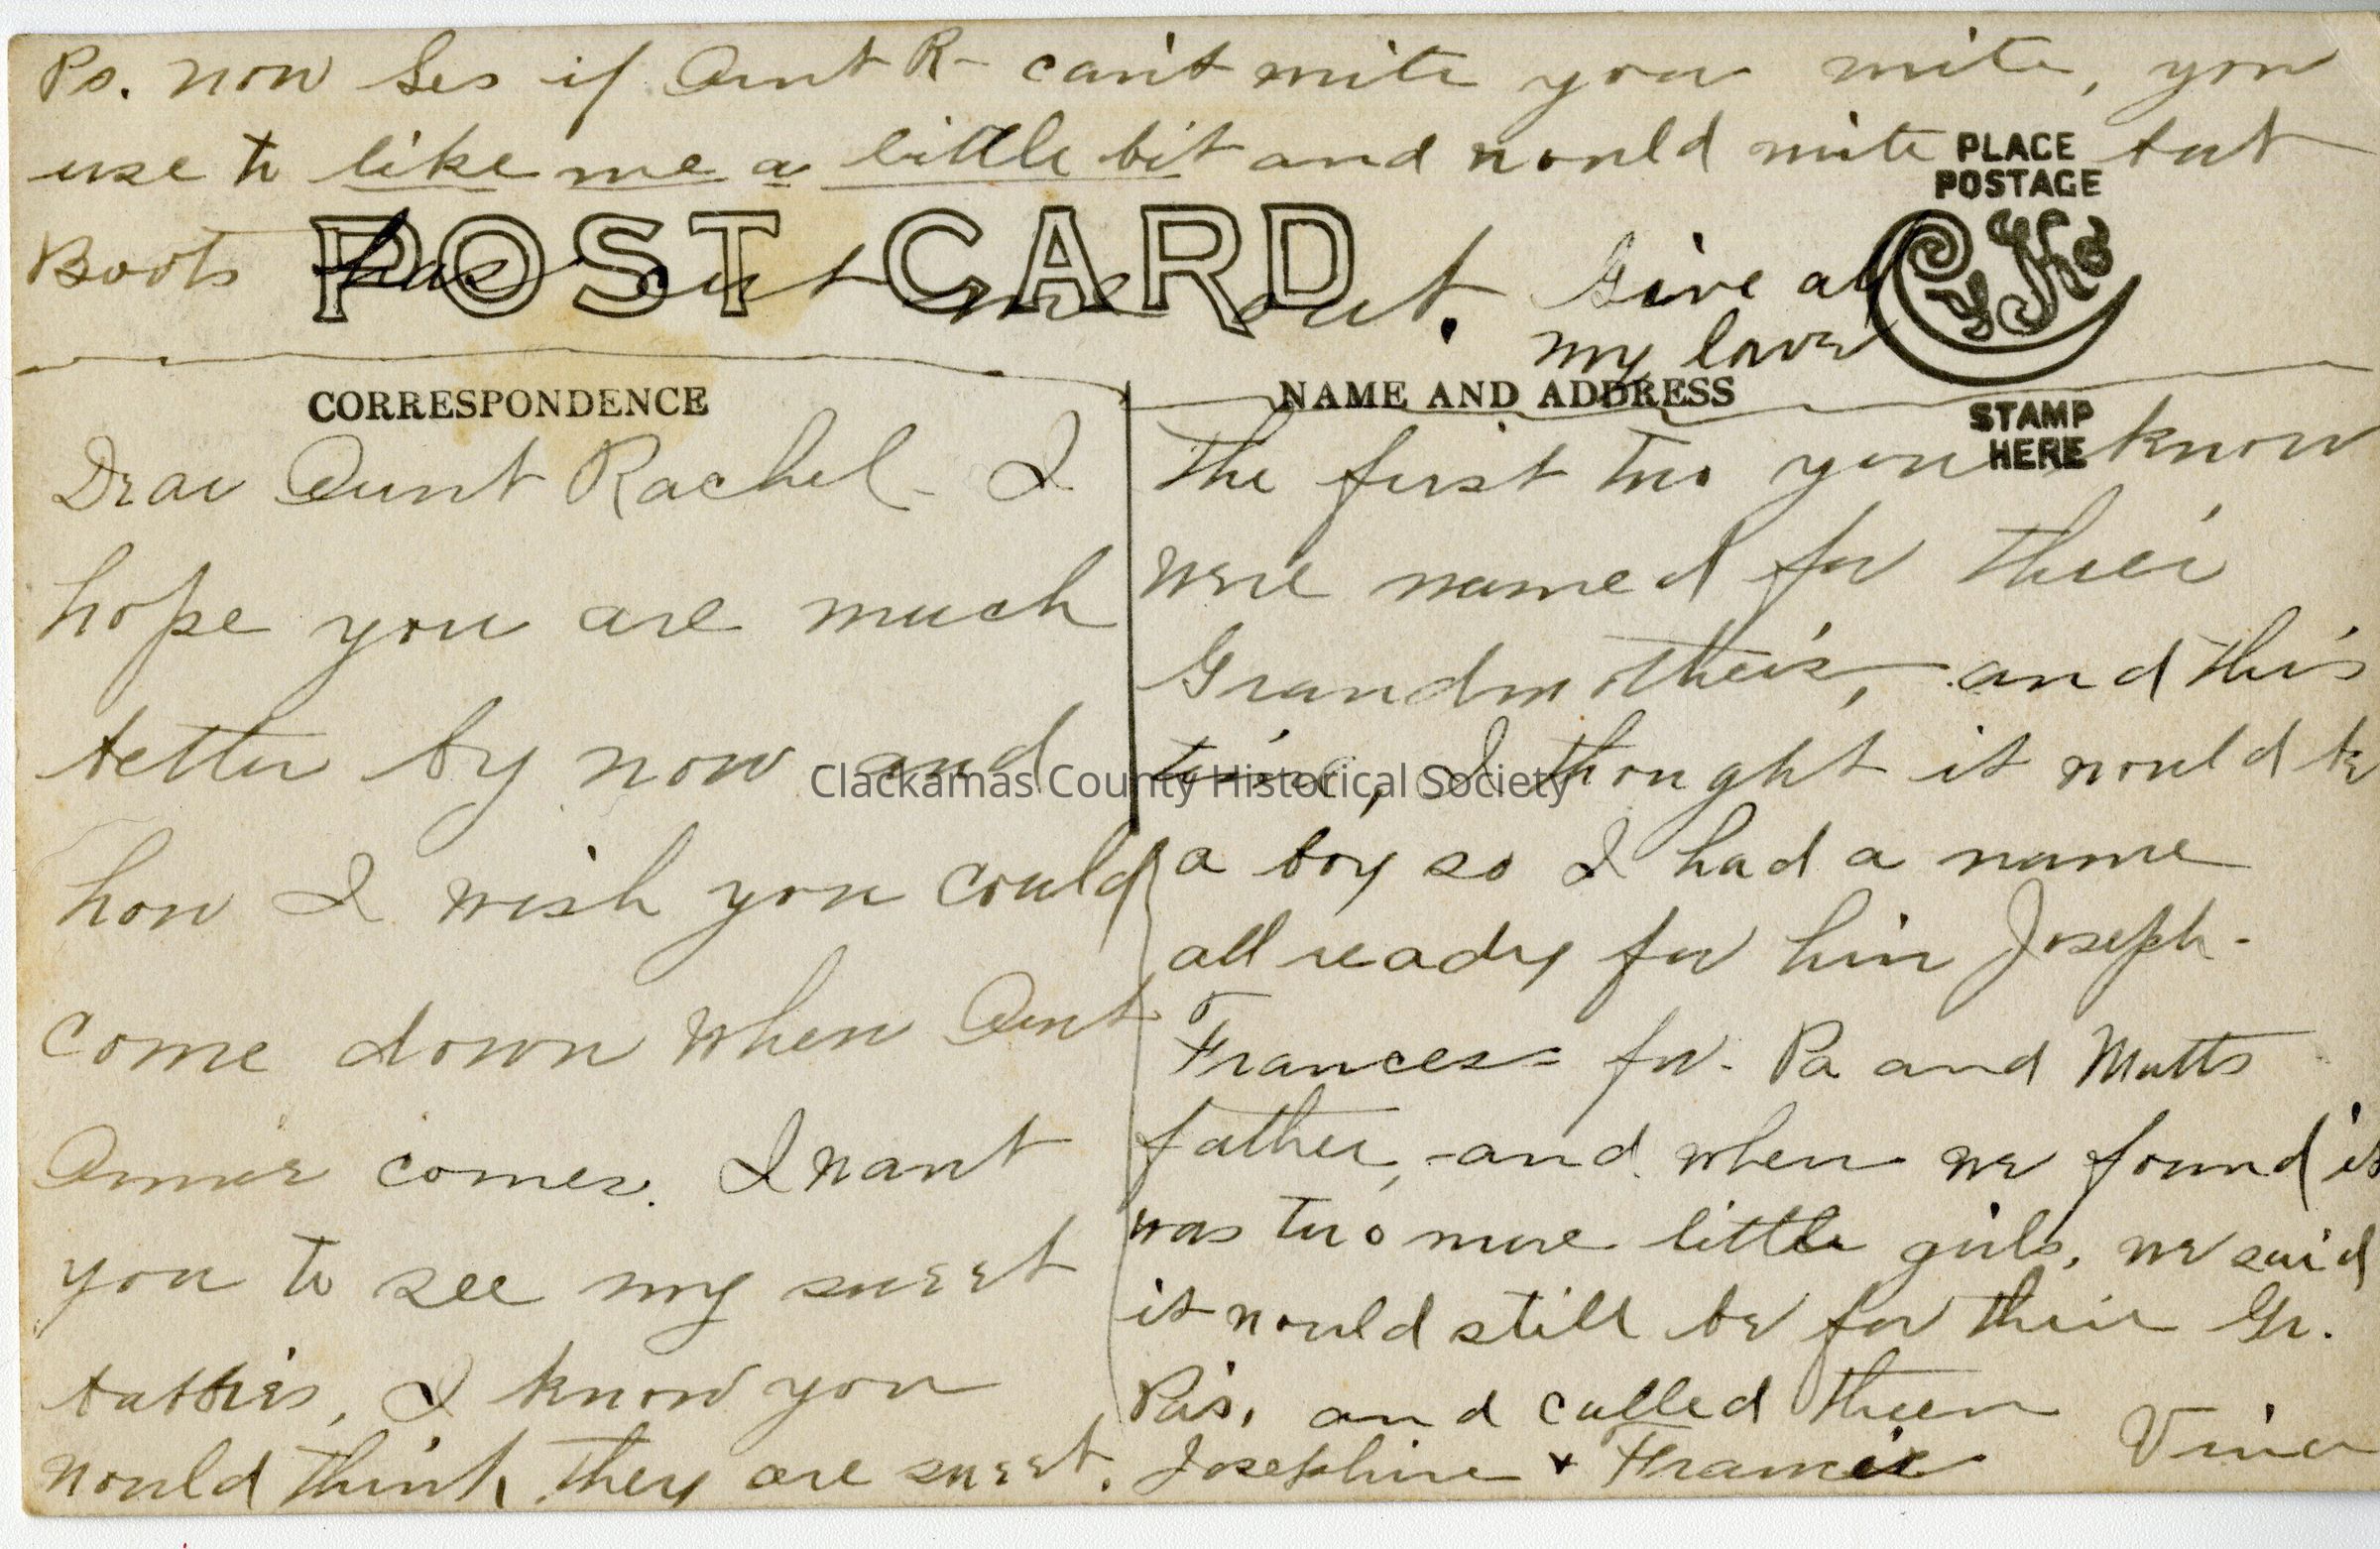 Ps. now see if Aunt R- can't write you write, you
use to like me a little bit and would write but
Boots has cut me out. Give all
my love
PLACE
POSTAGE
STAMP
HERE
POST CARD
CORRESPONDENCE
NAME AND ADDRESS
Dear Aunt Rachel - I
hope you are much
better by now and
how I wish you could
come down when Aunt
Annie comes. I want
you to see my sweet
babies, I know you
would think they are sweet.
the first two you know
were named for their
Grandmother's, and this
time, I thought it would be
a boy so I had a name
all ready for him Joseph-
Frances= for. Pa and Matts
father, -and when we found it
was two more little girls, we said
it would still be for their Gr.
Pa's, and called them
Josephine + Francis Vina
Clackamas County Historical Society